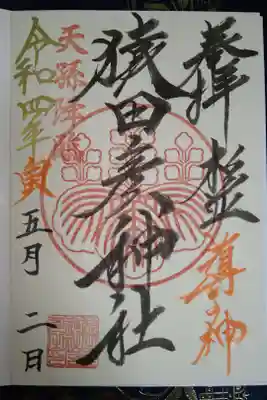 奉拝
猿田彦神社
天孫降臨
令和四年寅
五月二日